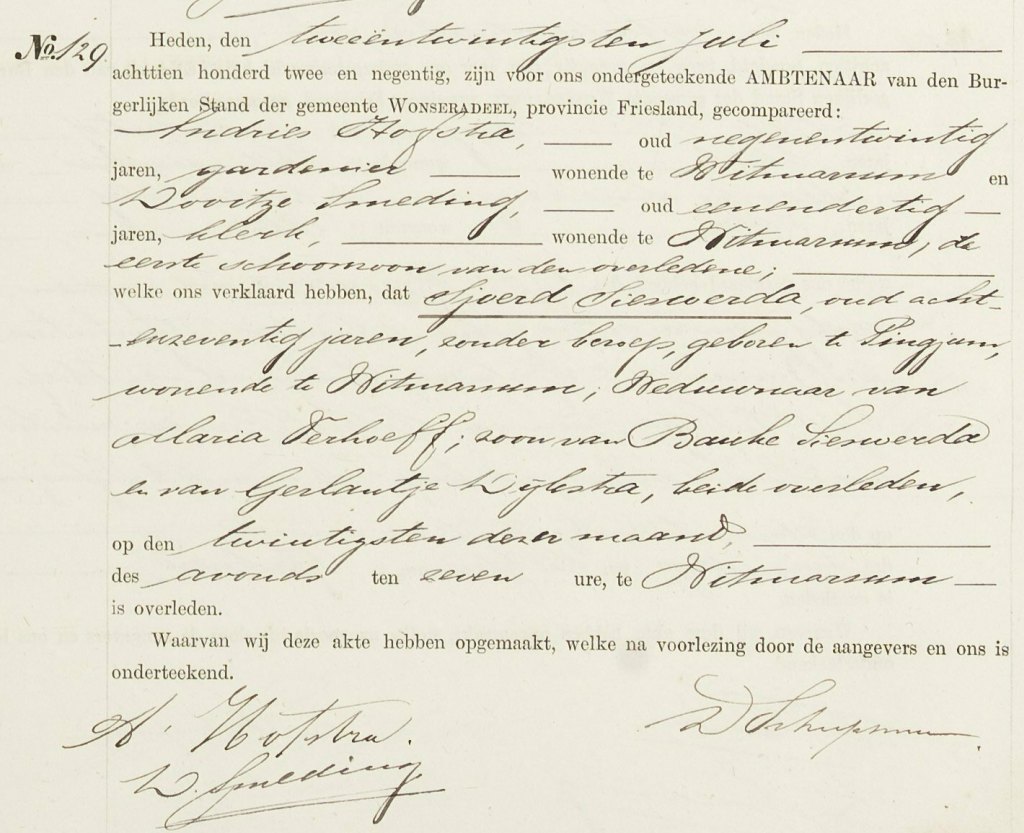 No. 129
Heden, den tweeëntwintigsten Juli
achttien honderd twee en negentig, zijn voor ons ondergeteekende AMBTENAAR van den Bur-
gerlijken Stand der gemeente WONSERADEEL, provincie Friesland, gecompareerd:
Andries Hofstra, oud negenentwintig
jaren, gardenier wonende te Witmarsum en
Wooitze Smeding, oud eenendertig
jaren, klerk, wonende te Witmarsum, de
eerste schoonzoon van den overledene;
welke ons verklaard hebben, dat Sjoerd Sieswerda, oud acht-
enzeventig jaren, zonder beroep, geboren te Pingjum,
wonende te Witmarsum, Weduwnaar van
Maria Verhoeff; zoon van Bauke Sieswerda
en van Gerlantje Dijkstra, beide overleden,
op den twintigsten dezer maand,
des avonds ten zeven ure, te Witmarsum
is overleden.
Waarvan wij deze akte hebben opgemaakt, welke na voorlezing door de aangevers en ons is
onderteekend.
A. Hofstra.
W. Smeding